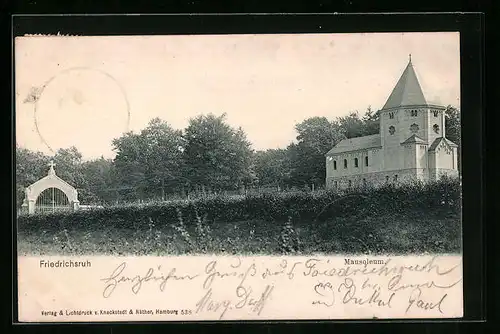 Friedrichsruh
Mausoleum.
Herzlichen Gruß aus Friedrichsruh
Onkel Paul
Verlag & Lichtdruck v. Knackstedt & Näther, Hamburg 538